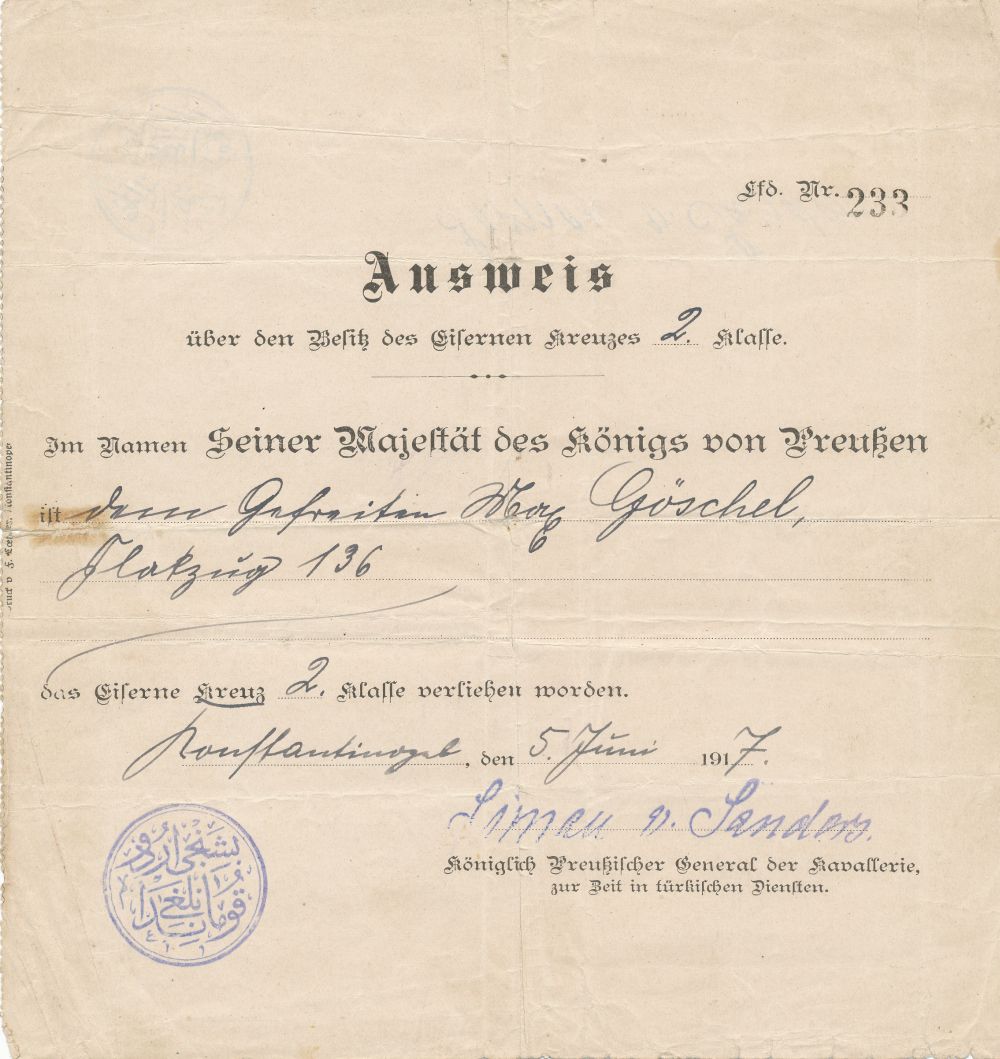 Lfd. Nr. 233
Ausweis
über den Besitz des Eisernen Kreuzes 2. Klasse.
Im Namen Seiner Majestät des Königs von Preußen
ist dem Gefreiten Max Göschel,
Flakzug 136
das Eiserne Kreuz 2. Klasse verliehen worden.
Konstantinopel, den 5. Juni 1917.
Liman v. Sanders.
Königlich Preußischer General der Kavallerie,
zur Zeit in türkischen Diensten.
بشنجی اردو
قوماندانلغی